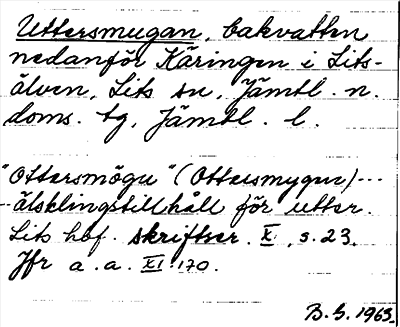 Uttersmugan, bakvatten
nedanför Käringen i Lits-
älven, Lits sn, Jämtl. n.
doms. tg, Jämtl. l.
"Ottersmögu" (Ottersmygur)...
--älsklingstillhåll för utter.
Lits hbf. skriftser. XI, s. 23.
Jfr a. a. XI:170.
B. S. 1963.